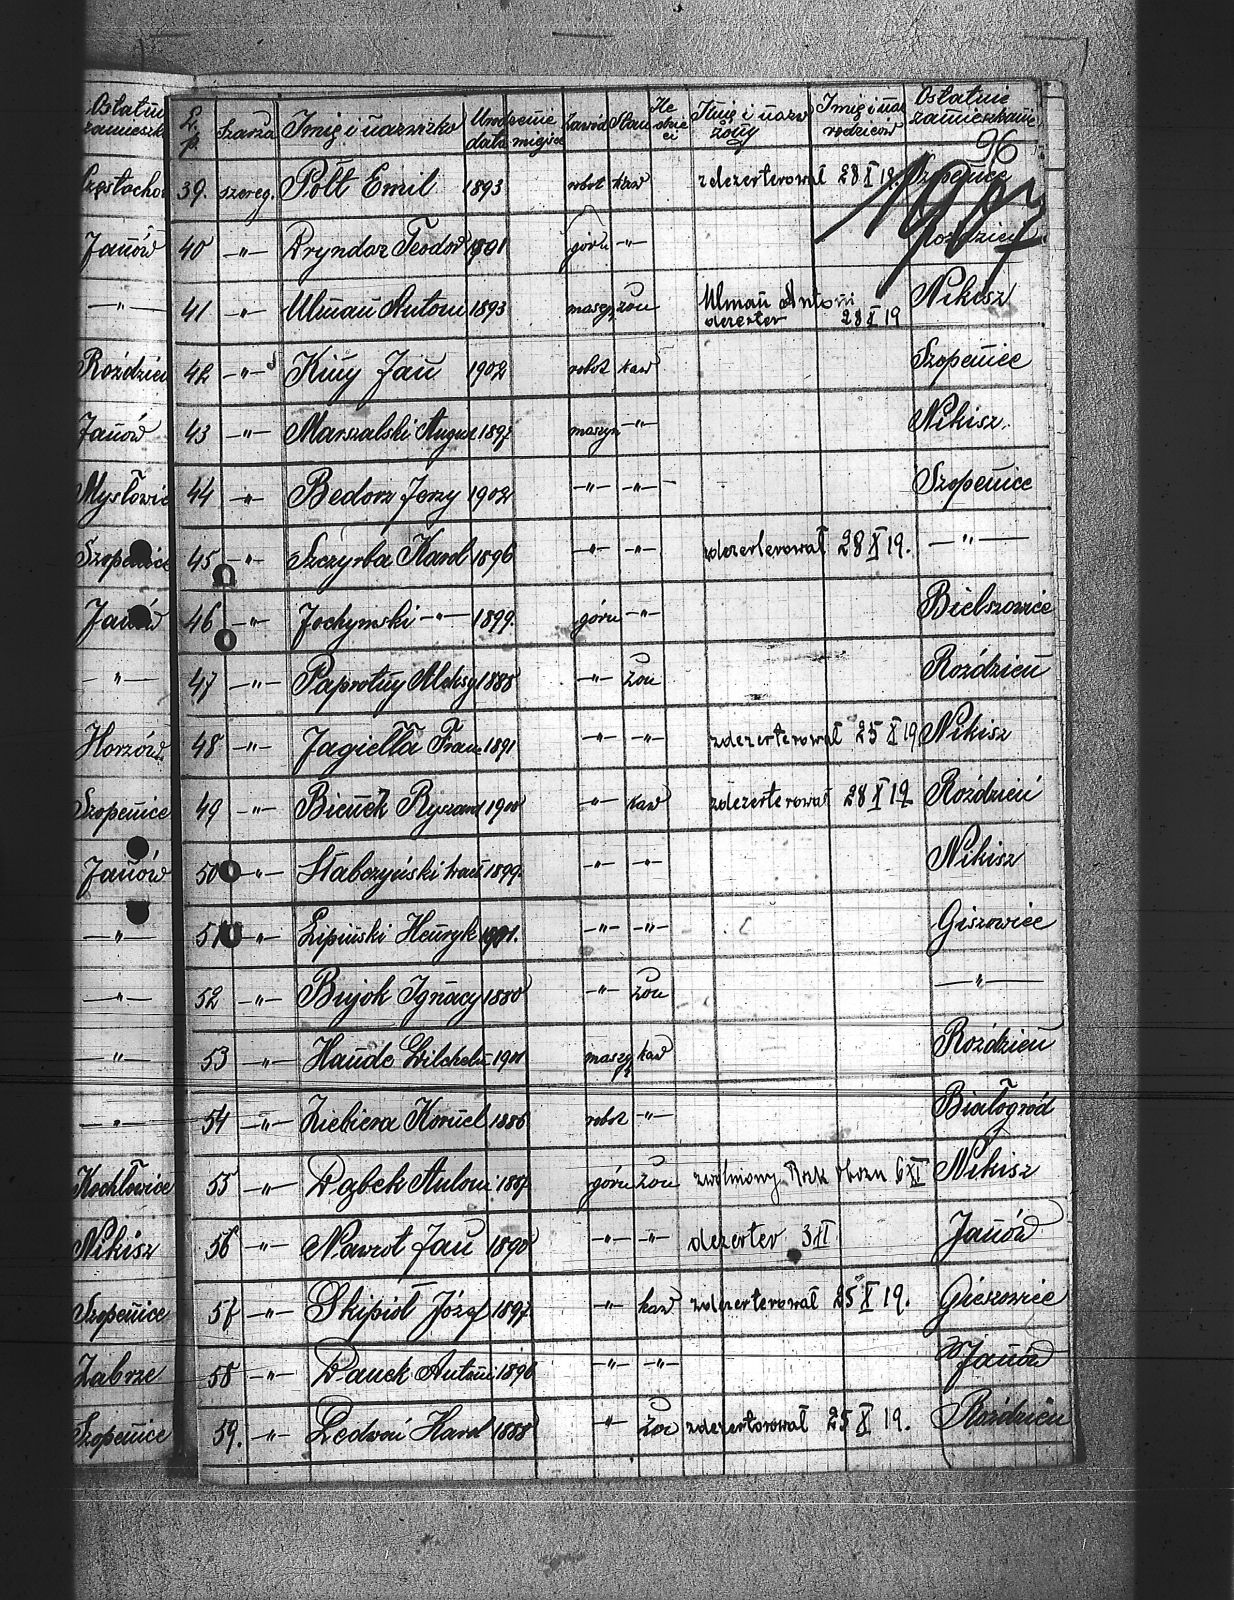 Ostatnie zamieszk
Częstochow
Janów
—"—
Roździeń
Janów
Mysłowice
Szopenice
Janów
—"—
Horzów
Szopenice
Janów
—"—
—"—
—"—
—"—
Kochłowice
Nikisz
Szopenice
Zabrze
Szopenice
L.p. Szarża Imię i nazwisko Urodzenie data miejsce Zawód Stan Ile dzieci Imię i nazw żony Imię i naz rodziców Ostatnie zamieszkanie
96
1907
39. szereg. Polt Emil 1893 robot kaw zdezerterował 28 X 19. Szopenice
40 —"— Pryndoz Teodor 1901 górn —"— Roździeń
41 —"— Ulman Antoni 1893 maszy żon Ulman Antoni dezerter 28 X 19 Nikisz
42 —"— Kiny Jan 1902 robot kaw Szopenice
43 —"— Marszalski August 1897 maszyn —"— Nikisz.
44 —"— Bedorz Jerzy 1902 —"— —"— Szopenice
45 —"— Szczyrba Karol 1896 —"— —"— zdezerterował 28 X 19. —"—
46 —"— Jochymski —"— 1899. górn —"— Bielszowice
47 —"— Paprotny Aleksy 1888 —"— żon Roździeń
48 —"— Jagiełła Fran 1891 —"— —"— zdezerterował 25 X 19 Nikisz
49 —"— Bienek Ryszard 1900 —"— kaw zdezerterował 28 X 19 Roździeń
50 —"— Stabczyński 1899. —"— —"— Nikisz
51 —"— Lipiński Henryk 1901. —"— —"— Giszowiec
52 —"— Bujok Ignacy 1880 —"— żon —"—
53 —"— Hande Wilchelm 1901 maszy kaw Roździeń
54 —"— Ziebiera Kornel 1886 robot —"— Białogród
55 —"— Dąbek Antoni górn żon zwolniony obozu 6 XI Nikisz
56 —"— Nawrot Jan 1890 —"— —"— dezerter 3 II Janów
57 —"— Skipioł Józef 1897. —"— kaw zdezerterował 25 X 19. Gieszowiec
58 —"— Danek Antoni 1896 —"— —"— Janów
59. —"— Ledwoń Karol 1888 —"— żon zdezerterował 25 X 19. Roździeń